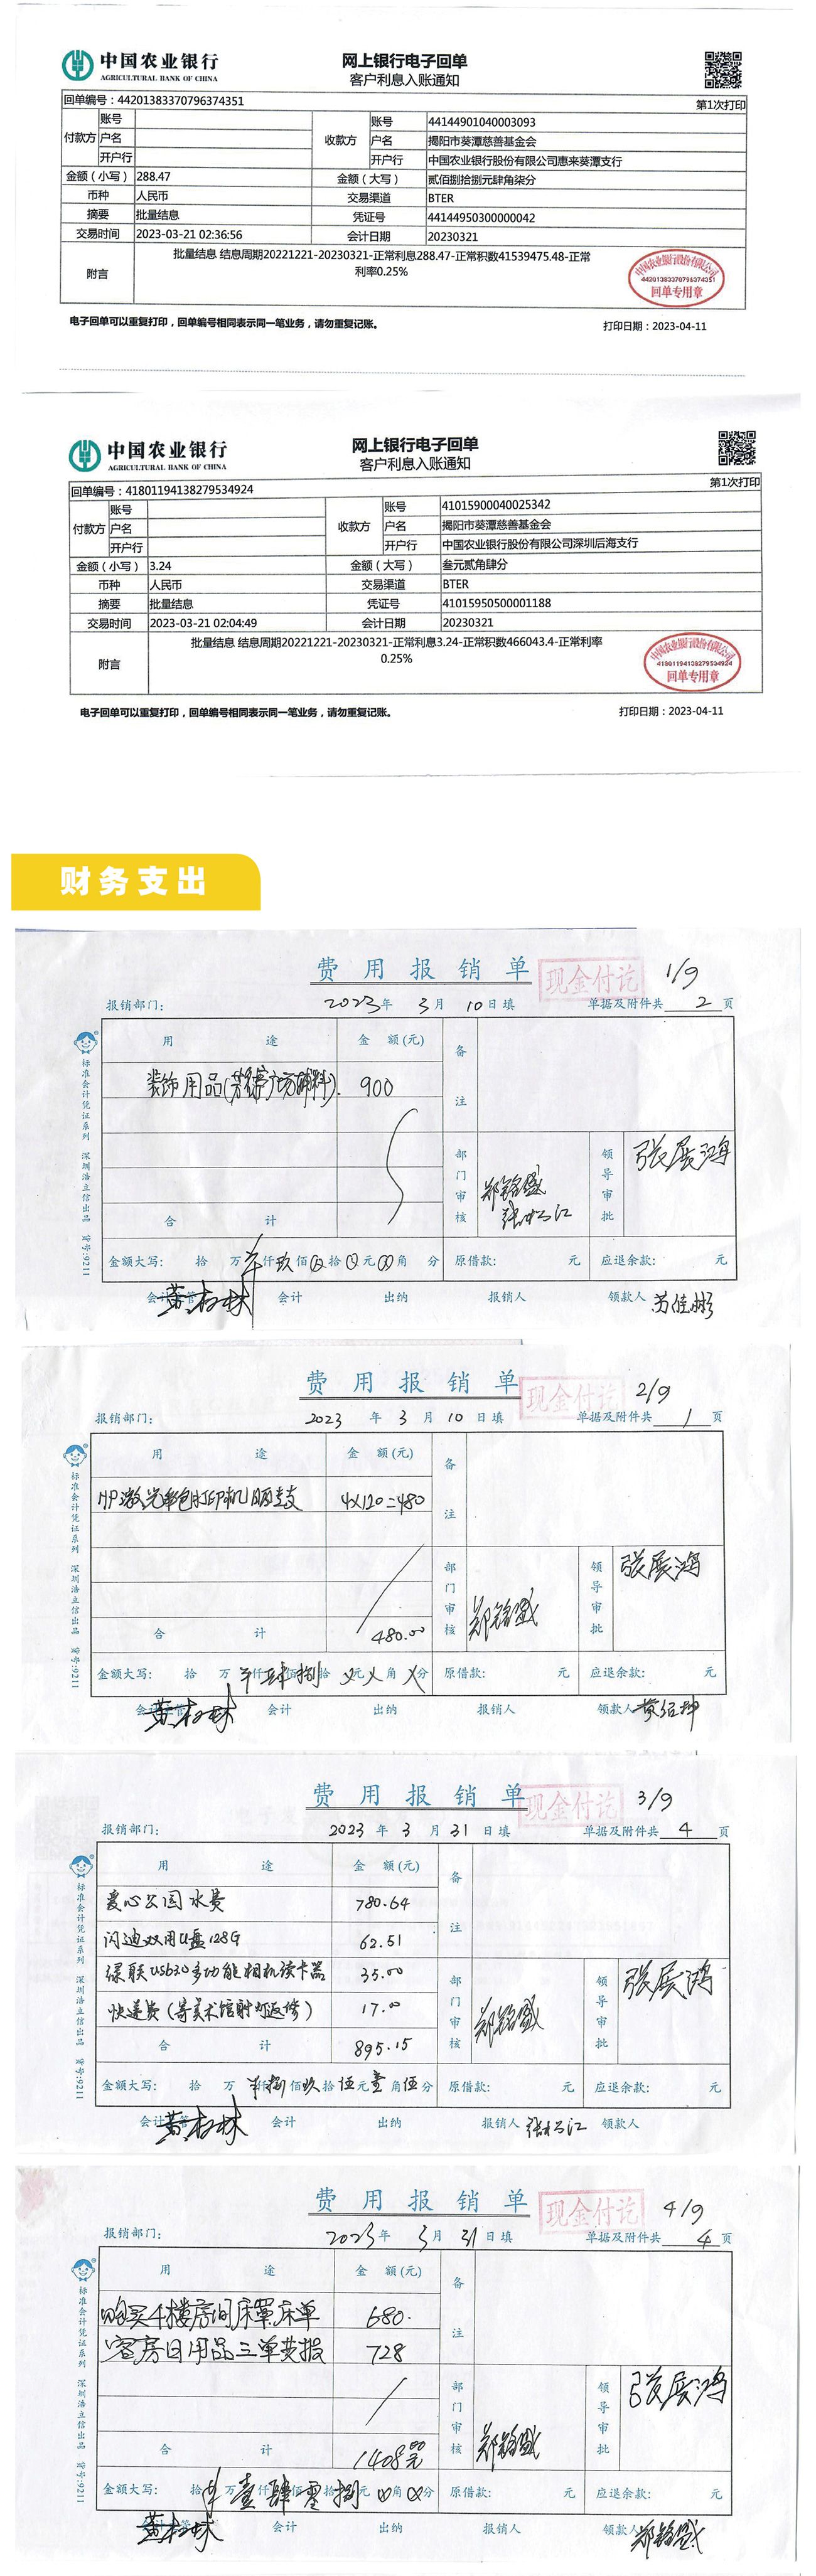 中国农业银行
AGRICULTURAL BANK OF CHINA
网上银行电子回单
客户利息入账通知
回单编号：44201383370796374351 第1次打印
付款方 账号 收款方 账号 44144901040003093
户名 户名 揭阳市葵潭慈善基金会
开户行 开户行 中国农业银行股份有限公司惠来葵潭支行
金额（小写） 288.47 金额（大写） 贰佰捌拾捌元肆角柒分
币种 人民币 交易渠道 BTER
摘要 批量结息 凭证号 44144950300000042
交易时间 2023-03-21 02:36:56 会计日期 20230321
附言 批量结息 结息周期20221221-20230321-正常利息288.47-正常积数41539475.48-正常
利率0.25%
中国农业银行股份有限公司
44201383370796374351
回单专用章
电子回单可以重复打印，回单编号相同表示同一笔业务，请勿重复记账。 打印日期：2023-04-11
中国农业银行
AGRICULTURAL BANK OF CHINA
网上银行电子回单
客户利息入账通知
回单编号：41801194138279534924 第1次打印
付款方 账号 收款方 账号 41015900040025342
户名 户名 揭阳市葵潭慈善基金会
开户行 开户行 中国农业银行股份有限公司深圳后海支行
金额（小写） 3.24 金额（大写） 叁元贰角肆分
币种 人民币 交易渠道 BTER
摘要 批量结息 凭证号 41015950500001188
交易时间 2023-03-21 02:04:49 会计日期 20230321
附言 批量结息 结息周期20221221-20230321-正常利息3.24-正常积数466043.4-正常利率
0.25%
中国农业银行股份有限公司
41801194138279534924
回单专用章
电子回单可以重复打印，回单编号相同表示同一笔业务，请勿重复记账。 打印日期：2023-04-11
财务支出
费用报销单 现金付讫 1/9
报销部门： 2023年 3月 10日填 单据及附件共 2 页
标准会计凭证系列 深圳浩立信出品 货号:9211
用途 金额(元) 备注
装饰用品 900
部门审核 郑铭盛 张 江 领导审批 张展鸿
合计
金额大写： 拾 万 仟 玖 佰 拾 元 角 分 原借款： 元 应退余款： 元
会计主管 黄柏林 会计 出纳 报销人 领款人
费用报销单 现金付讫 2/9
报销部门： 2023年 3月 10日填 单据及附件共 1 页
标准会计凭证系列 深圳浩立信出品 货号:9211
用途 金额(元) 备注
HP激光彩色打印机 4x120=480
部门审核 郑铭盛 领导审批 张展鸿
合计 480.00
金额大写： 拾 万 仟 肆 佰 捌 拾 元 角 分 原借款： 元 应退余款： 元
会计主管 黄柏林 会计 出纳 报销人 领款人
费用报销单 现金付讫 3/9
报销部门： 2023年 3月 31日填 单据及附件共 4 页
标准会计凭证系列 深圳浩立信出品 货号:9211
用途 金额(元) 备注
爱心公园水费 780.64
闪迪双用U盘128G 62.51
绿联USB3.0多功能相机读卡器 35.00
快递费(寄美术馆射灯返修) 17.00
部门审核 郑铭盛 领导审批 张展鸿
合计 895.15
金额大写： 拾 万 仟 捌 佰 玖 拾 伍 元 壹 角 伍 分 原借款： 元 应退余款： 元
会计主管 黄柏林 会计 出纳 报销人 领款人
费用报销单 现金付讫 4/9
报销部门： 2023年 3月 31日填 单据及附件共 4 页
标准会计凭证系列 深圳浩立信出品 货号:9211
用途 金额(元) 备注
购买4楼房间床罩床单 680.
客房日用品三单费报 728
部门审核 郑铭盛 领导审批 张展鸿
合计 1408.00元
金额大写： 拾 万 壹 仟 肆 佰 零 拾 捌 元 角 分 原借款： 元 应退余款： 元
会计主管 黄柏林 会计 出纳 报销人 领款人 郑铭盛